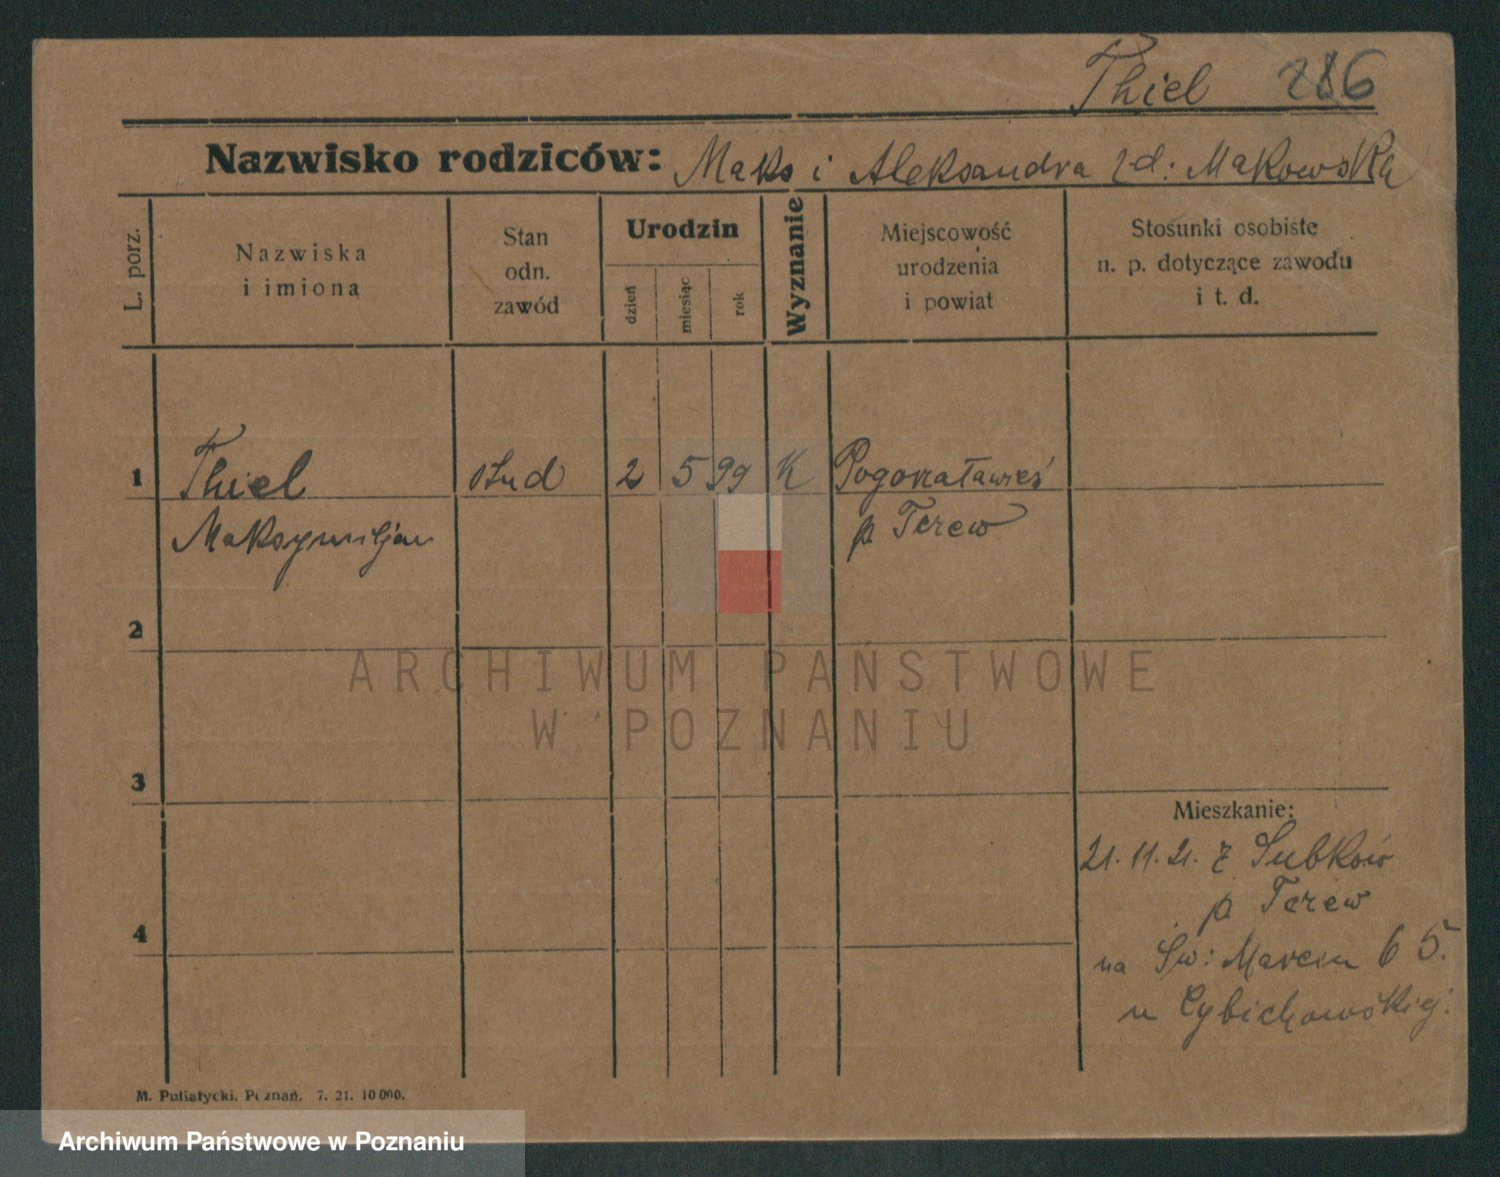 Thiel 286
Nazwisko rodziców: Maks i Aleksandra zd: Makowska
L. porz.
Nazwiska
i imiona
Stan
odn.
zawód
Urodzin
dzień
miesiąc
rok
Wyznanie
Miejscowość
urodzenia
i powiat
Stosunki osobiste
n. p. dotyczące zawodu
i t. d.
1 Thiel stud 2 5 99 K
Maksymiljan p. Tczew
2
3
4
Mieszkanie:
21. 11. 21. z Subków
p Tczew
na Św: Marcin 65.
u Cybichowskiej.
M. Putiatycki. Poznań. 7. 21. 10 000.
ARCHIWUM PAŃSTWOWE
W POZNANIU
Archiwum Państwowe w Poznaniu